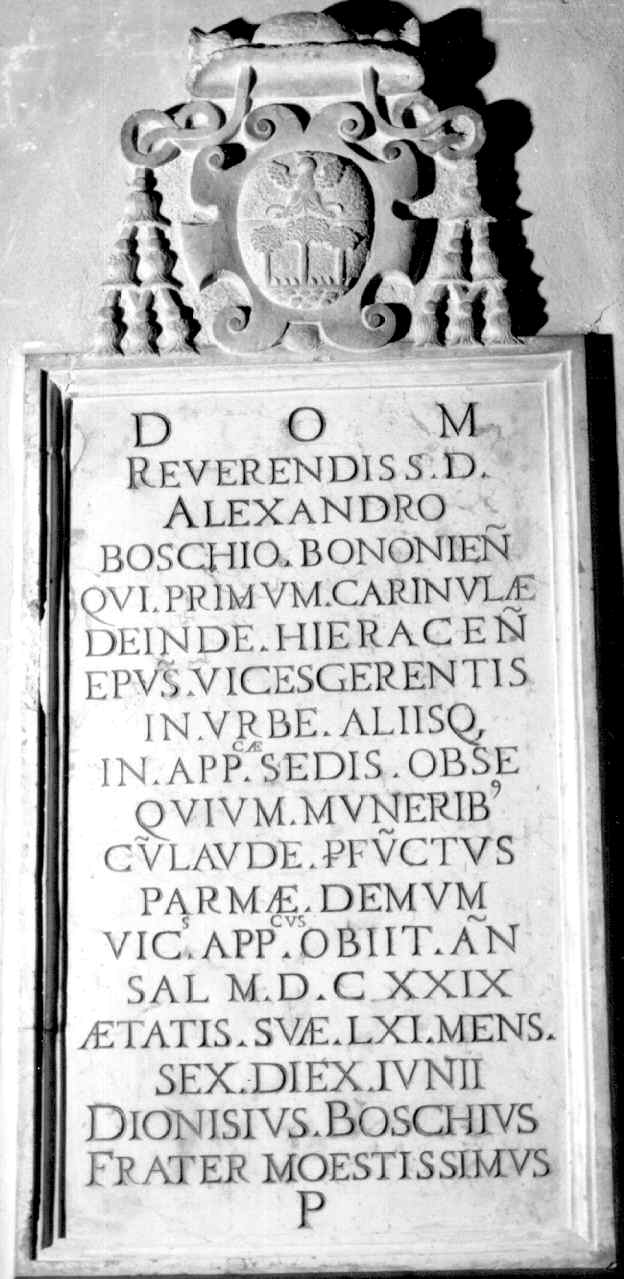 D O M
REVERENDISS. D.
ALEXANDRO
BOSCHIO. BONONIEÑ
QVI. PRIMVM. CARINVLÆ
DEINDE. HIERACEÑ
EPVS̃. VICESGERENTIS
IN. VRBE. ALIISQ,
IN. APP.CÆ SEDIS. OBSE
QVIVM. MVNERIBꝰ
CṼLAVDE. ꝑFṼCTVS
PARMÆ. DEMVM
VIC.S APP.CVS OBIIT. AÑ
SAL M.D.C XXIX
ÆTATIS. SVÆ. LXI. MENS.
SEX. DIEX. IVNII
DIONISIVS. BOSCHIVS
FRATER MOESTISSIMVS
P